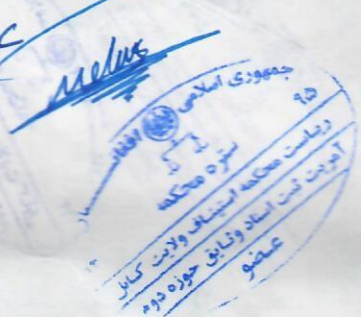 جمهوری اسلامی افغانستان
ستره محکمه
ریاست محکمه استیناف ولایت کابل
آمریت ثبت اسناد وثایق حوزه دوم
عضو